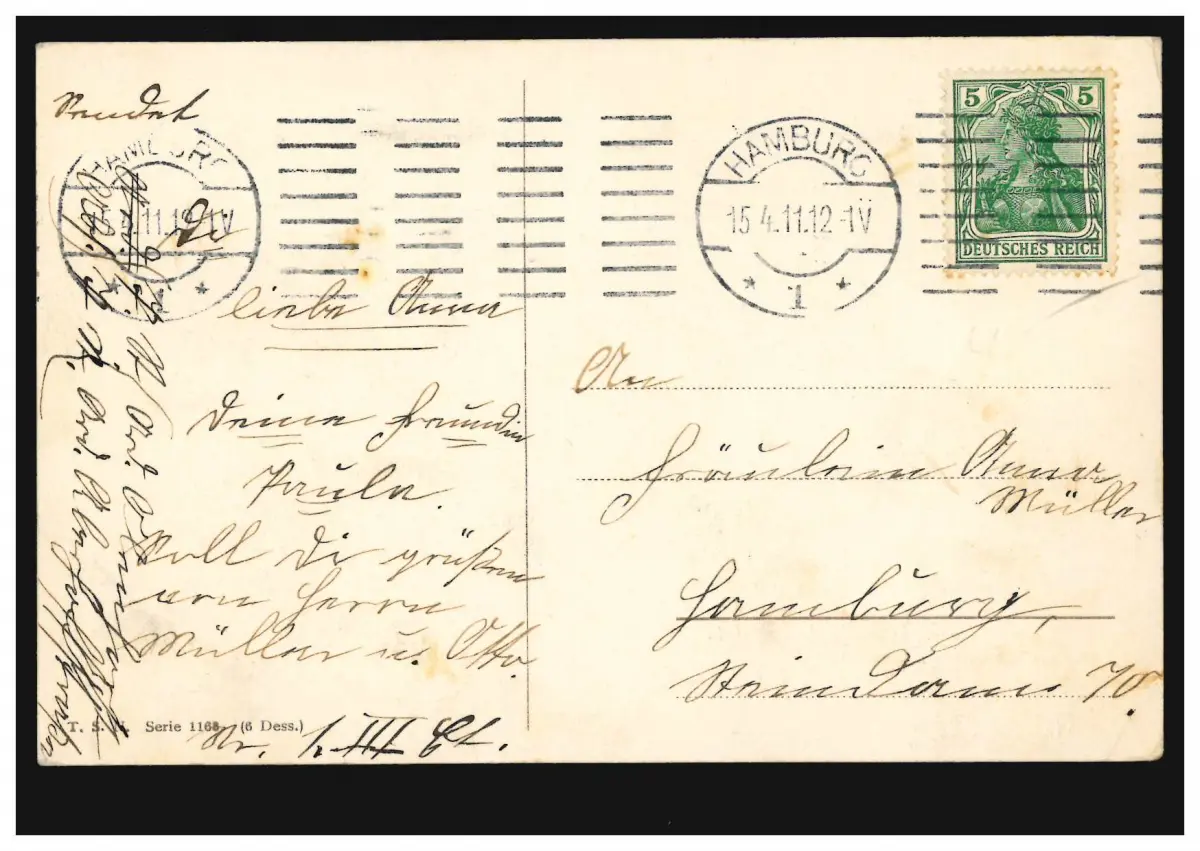 Sendet
Dir
liebe Anna
Deine Freundin
Paula.
Soll Di grüßen
von Herrn
Müller u. Otto.
Nr. 1. III Et.
T. S. N. Serie 1166 (6 Dess.)
HAMBURG
15.4.11.12-1V
* 1 *
HAMBURG
15.4.11.12-1V
* 1 *
5 5
DEUTSCHES REICH
An
Fräulein Anna
Müller
Hamburg,
Steindamm 70.